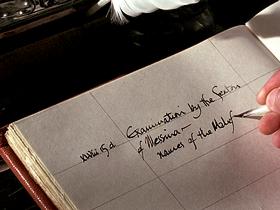 Examination by the Sexton
of Messina —
names of the Malef